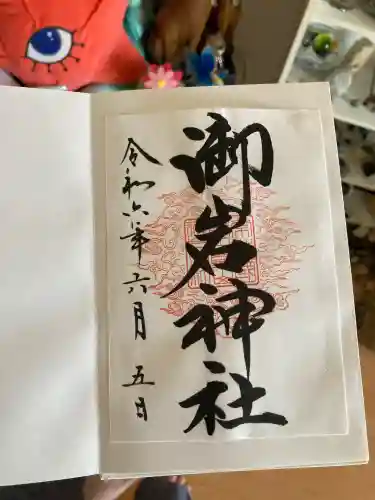 御岩神社
令和六年六月五日